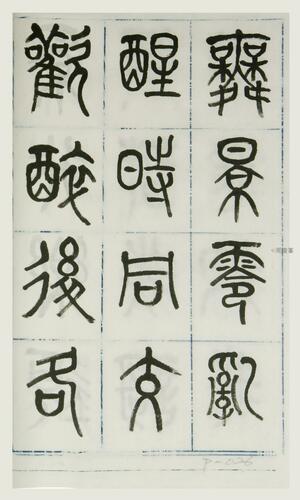 舞景零亂
醒時同交
歡醉後各
P-026